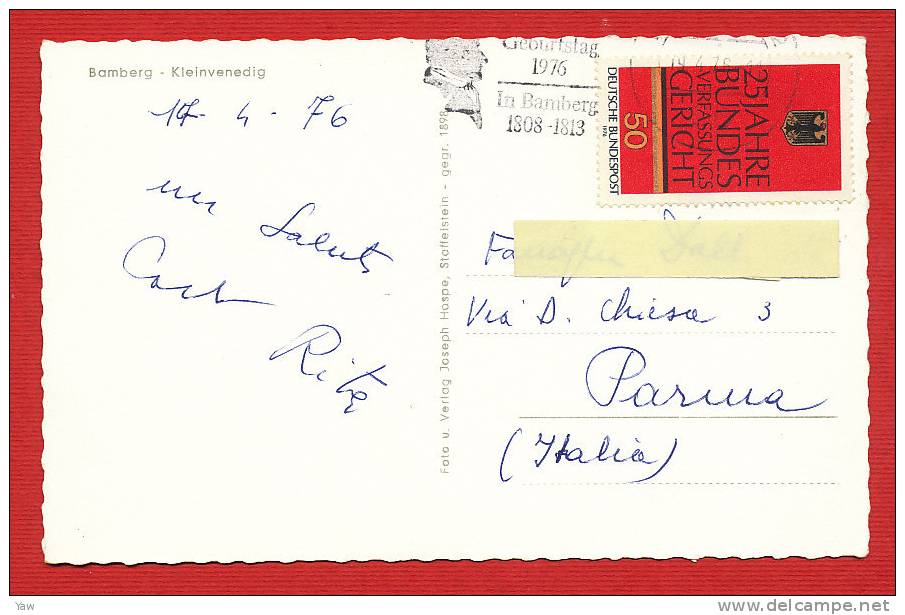 Bamberg - Kleinvenedig
17-4-76
un Saluto
Rita
Foto u. Verlag Joseph Hospe, Staffelstein - gegr. 1898
Geburtstag
1976
In Bamberg
1808-1813
25 JAHRE
BUNDES
VERFASSUNGS
GERICHT
50
1976
DEUTSCHE BUNDESPOST
Via D. Chiesa 3
Parma
(Italia)
Yaw
www.delcampe.net